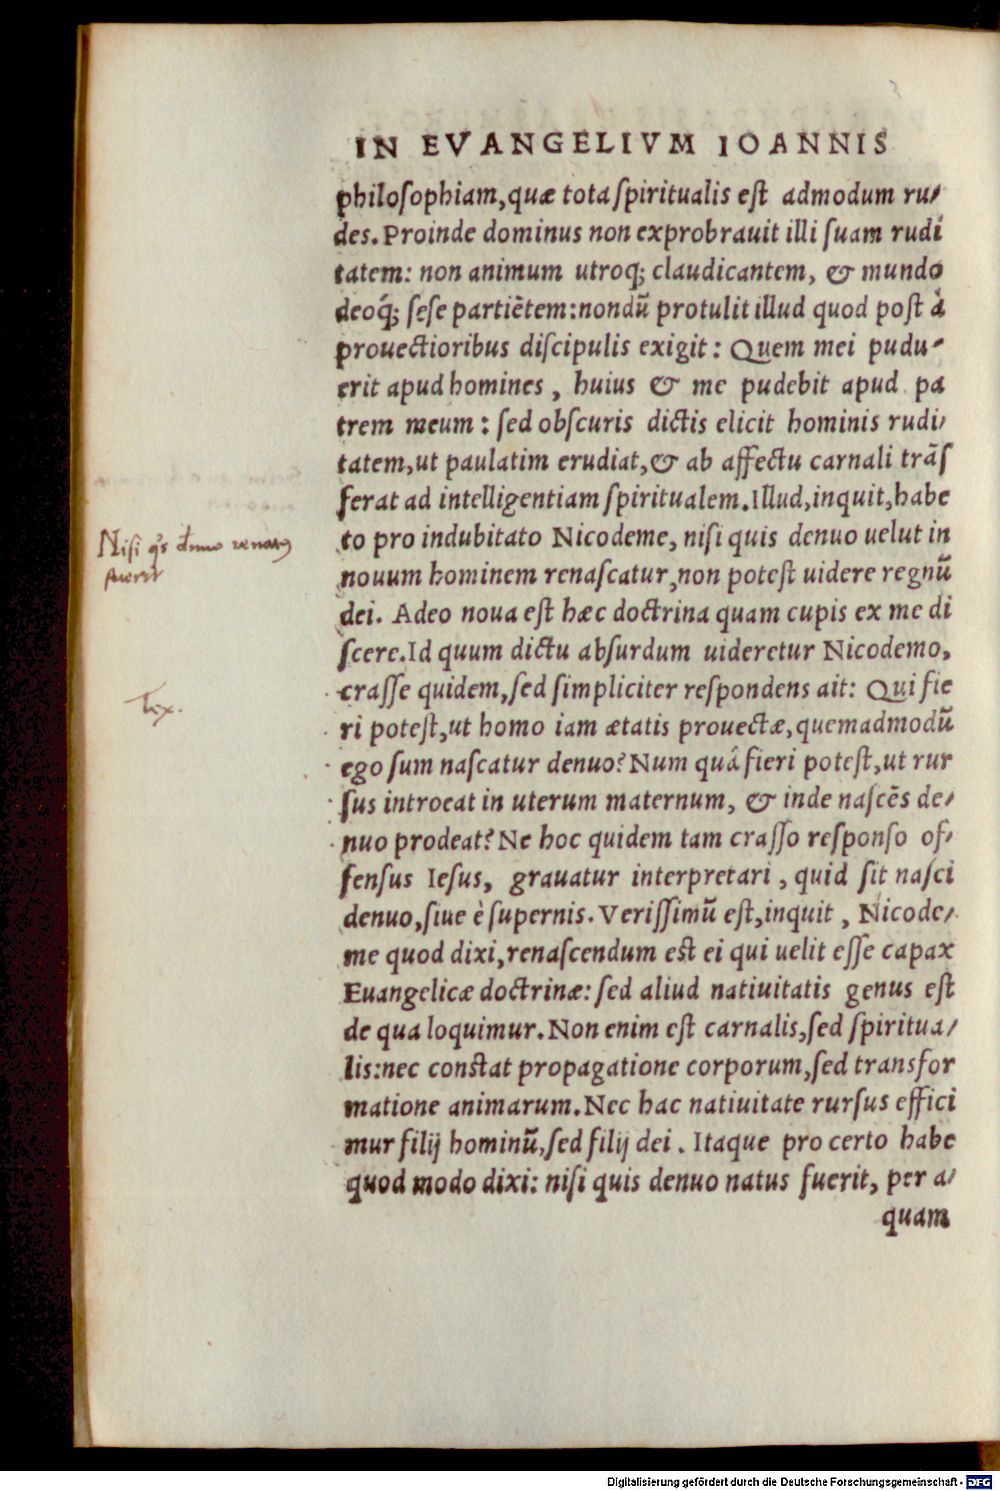 IN EVANGELIVM IOANNIS
philosophiam, quæ tota spiritualis est admodum ru/
des. Proinde dominus non exprobrauit illi suam rudi
tatem: non animum utroq; claudicantem, & mundo
deoq́; sese partiẽtem: nondũ protulit illud quod post à
prouectioribus discipulis exigit: Quem mei pudu-
erit apud homines, huius & me pudebit apud pa
trem meum: sed obscuris dictis elicit hominis rudi/
tatem, ut paulatim erudiat, & ab affectu carnali trãs
ferat ad intelligentiam spiritualem. Illud, inquit, habe
to pro indubitato Nicodeme, nisi quis denuo uelut in
nouum hominem renascatur, non potest uidere regnũ
dei. Adeo noua est hæc doctrina quam cupis ex me di
scere. Id quum dictu absurdum uideretur Nicodemo,
crasse quidem, sed simpliciter respondens ait: Qui fie
ri potest, ut homo iam ætatis prouectæ, quemadmodũ
ego sum nascatur denuo? Num quâ fieri potest, ut rur
sus introeat in uterum maternum, & inde nascẽs de/
nuo prodeat? Ne hoc quidem tam crasso responso of/
fensus Iesus, grauatur interpretari, quid sit nasci
denuo, siue è supernis. Verissimũ est, inquit, Nicode/
me quod dixi, renascendum est ei qui uelit esse capax
Euangelicæ doctrinæ: sed aliud natiuitatis genus est
de qua loquimur. Non enim est carnalis, sed spiritua/
lis: nec constat propagatione corporum, sed transfor
matione animarum. Nec hac natiuitate rursus effici
mur filij hominũ, sed filij dei. Itaque pro certo habe
quod modo dixi: nisi quis denuo natus fuerit, per a/
quam
Nisi q̃s denuo renatus
fuerit
Tex.
Digitalisierung gefördert durch die Deutsche Forschungsgemeinschaft - DFG